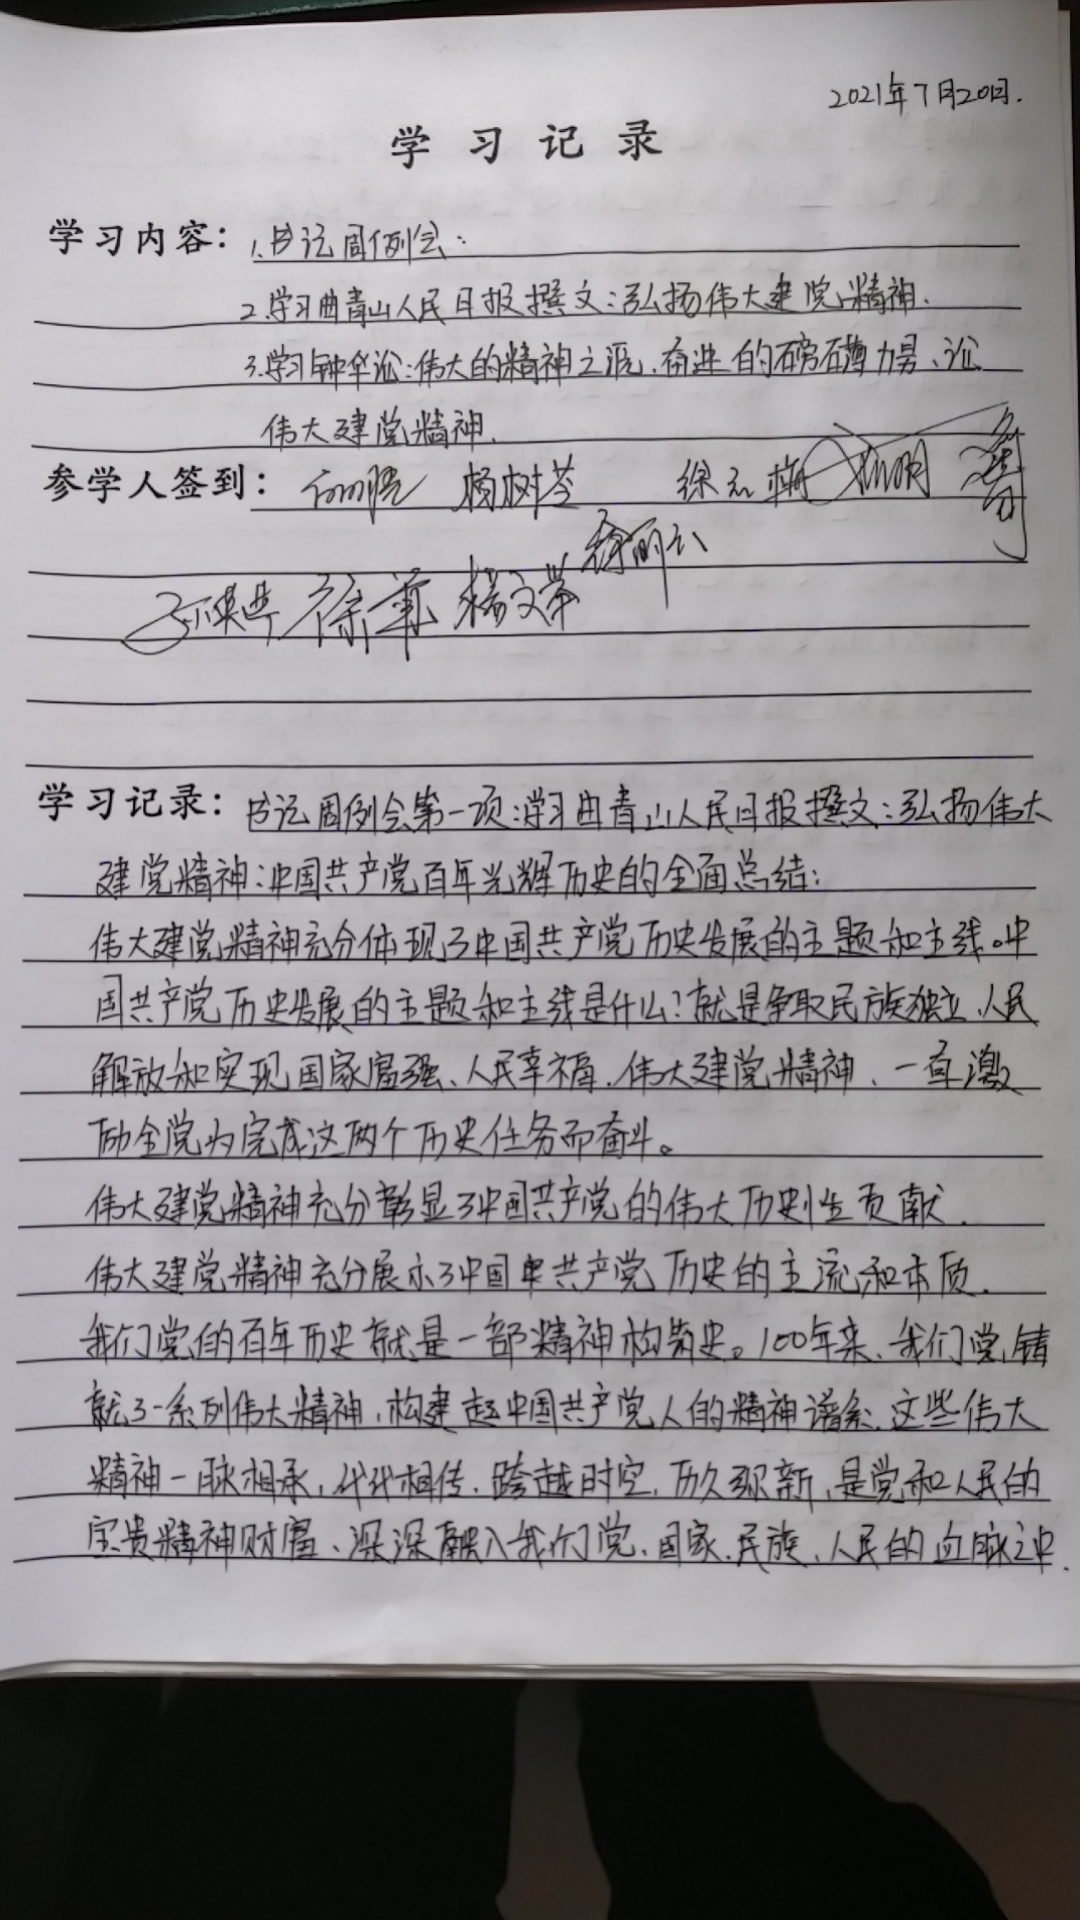 2021年7月20日.
学习记录
学习内容：1.书记周例会：
2.学习曲青山人民日报撰文：弘扬伟大建党精神.
3.学习钟华论：伟大的精神之源、奋进的磅礴力量、论
伟大建党精神.
参学人签到： 杨树芩 徐云梅
徐丽云
徐菲 杨文苹
学习记录：书记周例会第一项：学习曲青山人民日报撰文：弘扬伟大
建党精神：中国共产党百年光辉历史的全面总结：
伟大建党精神充分体现了中国共产党历史发展的主题和主线。中
国共产党历史发展的主题和主线是什么？就是争取民族独立、人民
解放和实现国家富强、人民幸福.伟大建党精神、一直激
励全党为完成这两个历史任务而奋斗。
伟大建党精神充分彰显了中国共产党的伟大历史性贡献.
伟大建党精神充分展示了中国共产党历史的主流和本质.
我们党的百年历史就是一部精神构筑史。100年来、我们党铸
就了一系列伟大精神,构建起中国共产党人的精神谱系.这些伟大
精神一脉相承,代代相传.跨越时空,历久弥新,是党和人民的
宝贵精神财富、深深融入我们党、国家、民族、人民的血脉之中.